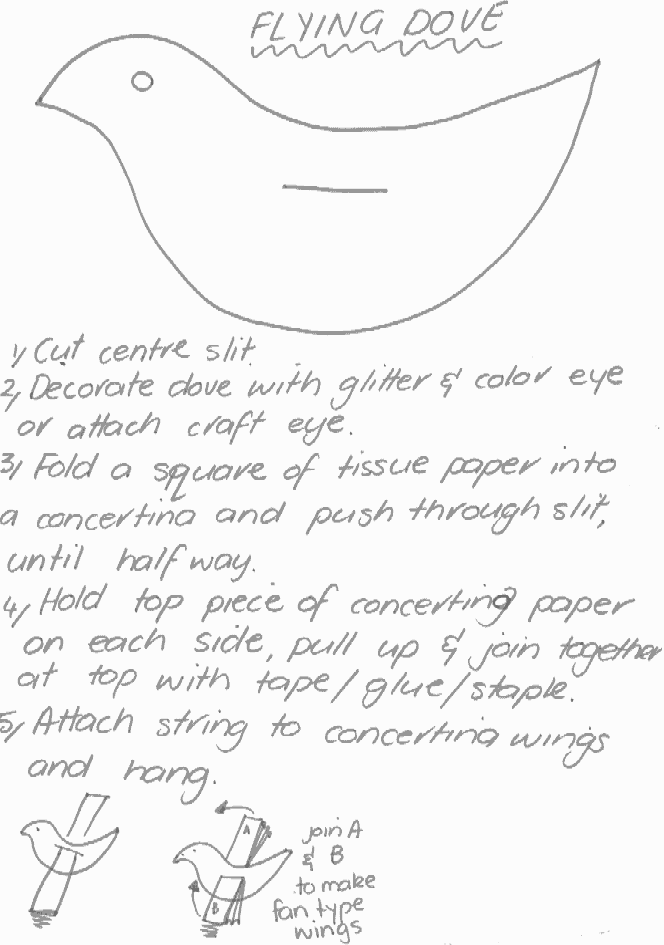 FLYING DOVE
1) Cut centre slit
2) Decorate dove with glitter & color eye
or attach craft eye.
3) Fold a square of tissue paper into
a concertina and push through slit,
until half way.
4) Hold top piece of concertina paper
on each side, pull up & join together
at top with tape/glue/staple.
5) Attach string to concertina wings
and hang.
A
B
join A
& B
to make
fan type
wings